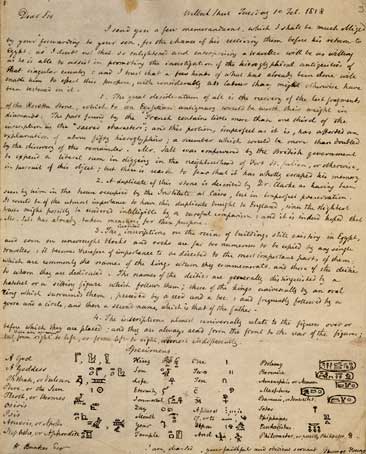 Dear Sir Welbeck Street Tuesday 10 Feb. 1818
I send you a few memorandums, which I shall be much obliged
by your forwarding to your son, for the chance of his receiving them before his return to
Egypt: as I doubt not that so enlightened and enterprising a traveller will be as willing
as he is able to assist in promoting the investigation of the hieroglyphical antiquities of
that singular country: and I trust that a few hints of what has already been done will
enable him to effect this purpose, with considerably less labour than might otherwise have
been required in it.
1. The great desideratum of all is the recovery of the lost fragments
of the Rosetta Stone, which to an Egyptian antiquary would be worth their weight in
diamonds. The part found by the French contains little more than one third of the
inscription in the "sacred characters"; and this portion, imperfect as it is, has afforded an
explanation of above fifty hieroglyphics; a number which would be more than doubled
by the discovery of the remainder. Mr. Salt was empowered by the British government
to expend a liberal sum in digging in the neighbourhood of Fort St. Julian, or otherwise,
in pursuit of this object; but there is reason to fear that it has wholly escaped his memory.
2. A duplicate of this stone is described by Dr. Clarke as having been
seen by him in the house occupied by the Institute at Cairo, but in imperfect preservation.
It would be of the utmost importance to have this duplicate brought to England, since the slightest
traces might possibly be rendered intelligible by a careful comparison; and it is indeed hoped that
Mr. Salt has already taken measures for this purpose.
3. The inscriptions on the ruins of buildings still existing in Egypt,
and even on unwrought blocks and rocks are far too numerous to be copied by any single
traveller; it becomes therefore of importance to be directed to the most important parts of them,
which are commonly the names of the kings whom they commemorate, and those of the deities
to whom they are dedicated. The names of the deities are generally distinguished by a
hatchet or a sitting figure which follows them; those of the kings universally by an oval
ring which surrounds them, preceded by a reed and a bee; and frequently followed by a
goose and a circle, and then a second name, which is that of the father.
4. The inscriptions almost universally relate to the figures over or
before which they are placed: and they are always read from the front to the rear of the figures;
Specimens
A God King One
A Goddess Son Two
Life Ten
Joe, or the Sun
Thoth, or Thermes Immortal
Osiris Day
Isis Month
Year
Nephthe, or Aphrodite Temple And
Ptolemy
Berenice
Memphis
Epiphanes
H. Bankes Esqr. I am, dear Sir, your faithful and obedient servant Thomas Young